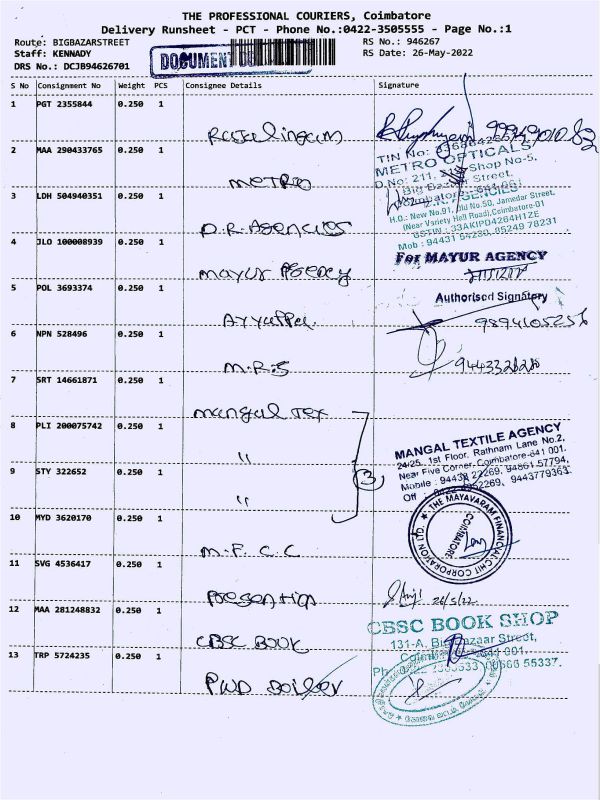 THE PROFESSIONAL COURIERS, Coimbatore
Delivery Runsheet - PCT - Phone No.:0422-3505555 - Page No.:1
Route: BIGBAZARSTREET
RS No.: 946267
Staff: KENNADY
DOCUMENT
RS Date: 26-May-2022
DRS No.: DCJB94626701
S No Consignment No Weight PCS Consignee Details Signature
1 PGT 2355844 0.250 1
Rajalingam
2 MAA 290433765 0.250 1
TIN No:
METRO OPTICALS
D.No: 211, Shop No-5,
Big Bazaar Street,
Metro
3 LDH 504940351 0.250 1
AGENCIES
H.O.: New No.91, Old No.50, Jamedar Street,
(Near Variety Hall Road), Coimbatore-01
GSTIN : 33AKIPD4264H1ZE
Mob : 94431 54230, 85249 78231
D.R. Agencies
4 JLO 100008939 0.250 1
For MAYUR AGENCY
Mayur Agency
5 POL 3693374 0.250 1
Authorised Signatory
Ayyappa.
9894105256
6 NPN 528496 0.250 1
M.R.S
7 SRT 14661871 0.250 1
Mangal Tex
8 PLI 200075742 0.250 1
"
MANGAL TEXTILE AGENCY
24/25, 1st Floor, Rathnam Lane No.2,
Near Five Corner, Coimbatore-641 001.
Mobile : 94433 22269, 94861 57794,
Off : 2269, 9443779363
9 STY 322652 0.250 1
"
3
10 MYD 3620170 0.250 1
THE MAYAVARAM FINANCIAL CHIT CORPORATION LTD.
COIMBATORE
M.F.C.C
11 SVG 4536417 0.250 1
26/5/22
12 MAA 281248832 0.250 1
CBSC BOOK SHOP
131-A, Big Bazaar Street,
CBSC Book
13 TRP 5724235 0.250 1
55337.
PWD Boiler